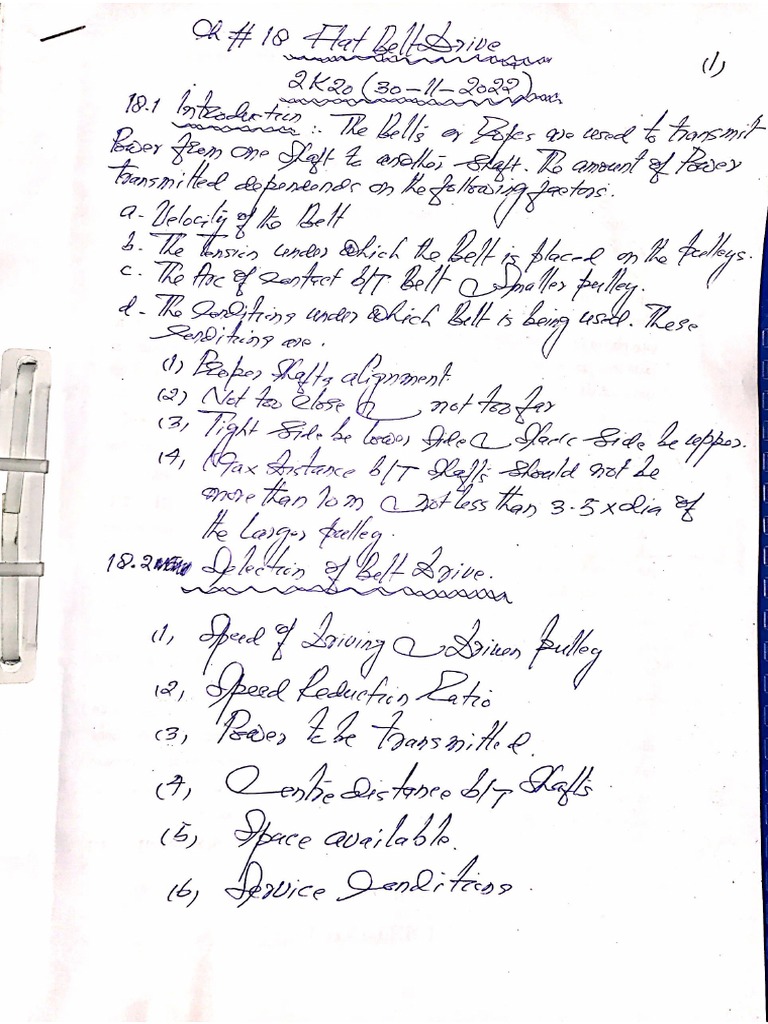 Ch # 18 Flat Belt Drive
(1)
2K20 (30-11-2022)
18.1 Introduction :. The Belts or Ropes are used to transmit
Power from one shaft to another shaft. The amount of Power
transmitted dependends on the following factors.
a- Velocity of the Belt
b. The Tension under which the Belt is placed on the pulleys.
c. The Arc of contact b/T Belt & Smaller pulley.
d- The Conditions under which Belt is being used. These
Conditions are.
(1) Proper shafts alignment
(2) Not too close & not too far
(3) Tight side be lower side & Slack side be upper.
(4) Max distance b/T shafts should not be
more than 10 m & not less than 3.5 x dia of
the larger pulley.
18.2 Selection of Belt Drive.
(1) Speed of Driving & Driven pulley
(2) Speed Reduction Ratio
(3) Power to be transmitted.
(4) Centre distance b/T shafts
(5) Space available.
(6) Service Conditions.